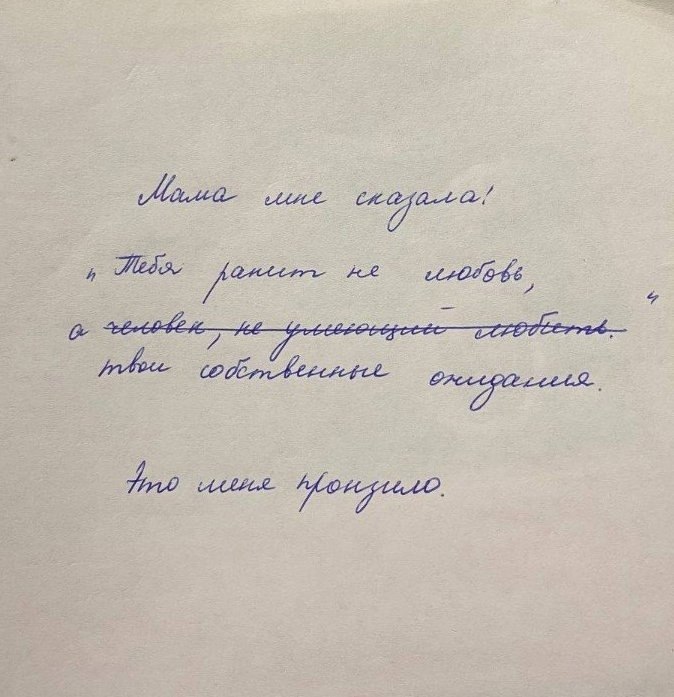 Мама мне сказала!
"Тебя ранит не любовь,
а человек, не умеющий любить."
твои собственные ожидания.
Это меня пронзило.